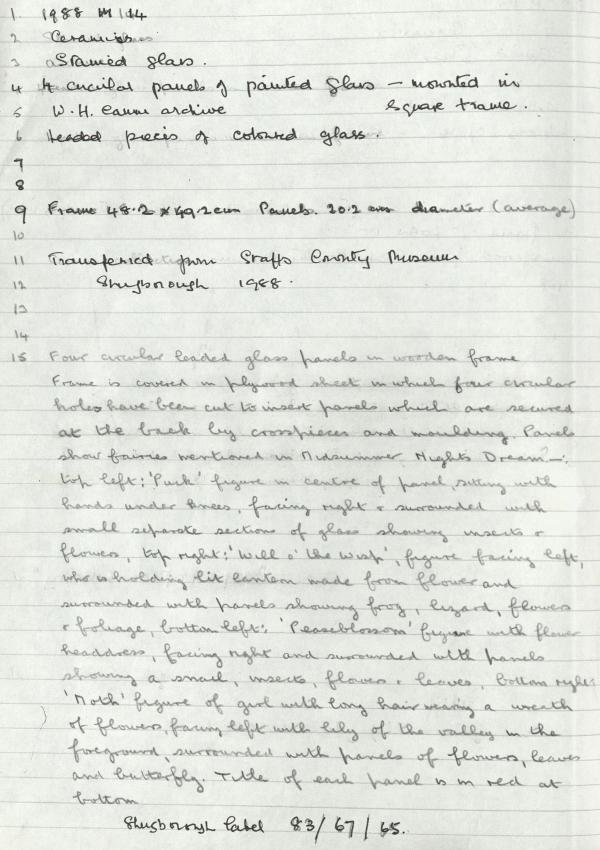 1. 1988 M 144
2 Ceramics
3 Stained glass.
4 4 circular panels of painted glass – mounted in
square frame.
5 W.H. Cauni archive
6 Leaded pieces of coloured glass.
7
8
9 Frame 48.2 x 49.2 cm Panels. 20.2 cm diameter (average)
10
11 Transferred from Staffs County Museum
12 Shugborough 1988.
13
14
15 Four circular leaded glass panels in wooden frame
Frame is covered in plywood sheet in which four circular
holes have been cut to insert panels which are secured
at the back by crosspieces and moulding. Panels
show fairies mentioned in Midsummer Nights Dream –:
top left; 'Puck' figure in centre of panel, sitting with
hands under knees, facing right & surrounded with
small separate sections of glass showing insects &
flowers, top right; 'Will o' the Wisp', figure facing left,
who is holding lit lantern made from flower and
surrounded with panels showing frog, lizard, flowers
& foliage, bottom left: 'Peaseblossom' figure with flower
headdress, facing right and surrounded with panels
showing a snail, insects, flowers & leaves, bottom right:
'Moth' figure of girl with long hair wearing a wreath
of flowers, facing left with lily of the valley in the
foreground, surrounded with panels of flowers, leaves
and butterfly. Title of each panel is in red at
bottom
Shugborough label 83/67/65.